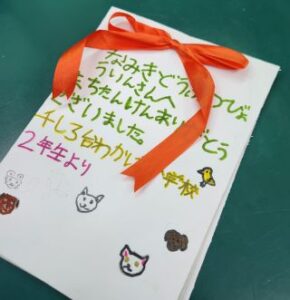 なみきどう つびょ
ういんさんへ
まちたんけんありがとう
ございました
千しろ台わかば小学校
2年生より